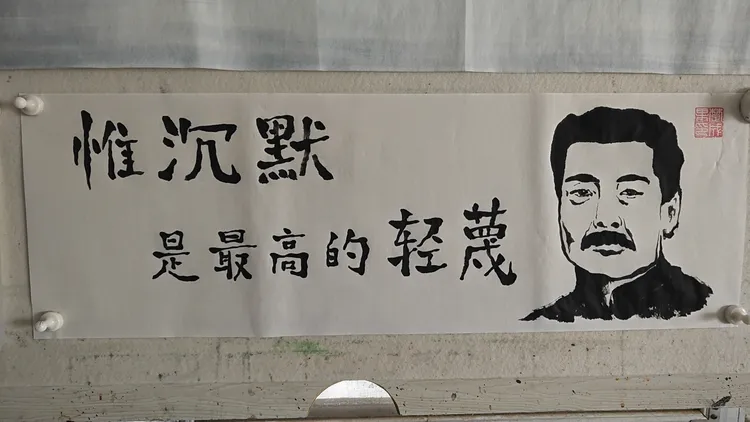 惟沉默
是最高的轻蔑